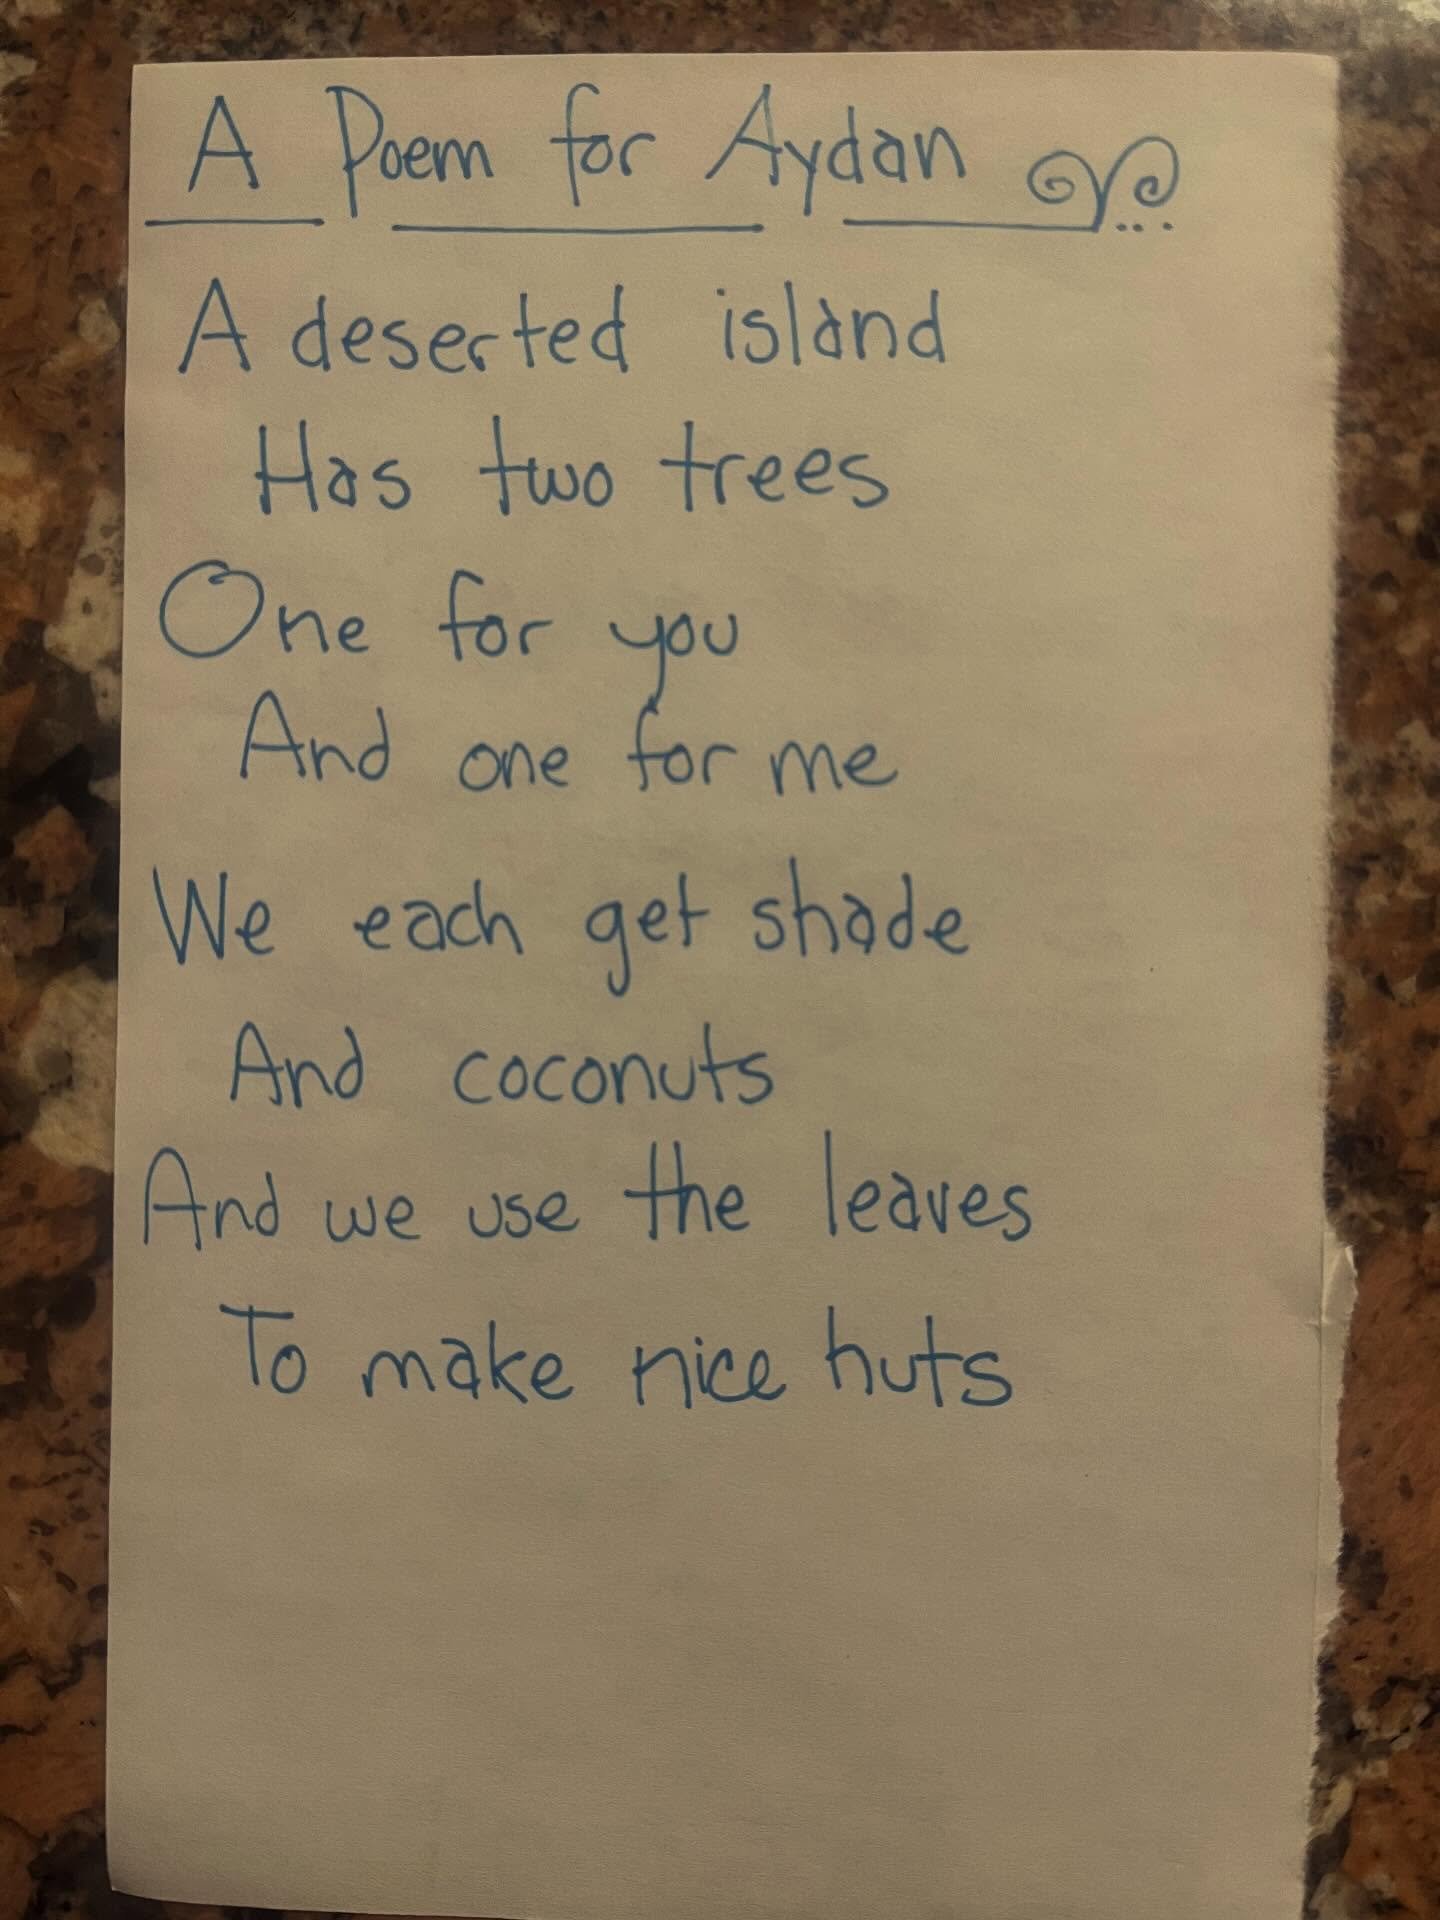 A Poem for Aydan
A deserted island
Has two trees
One for you
And one for me
We each get shade
And coconuts
And we use the leaves
To make nice huts